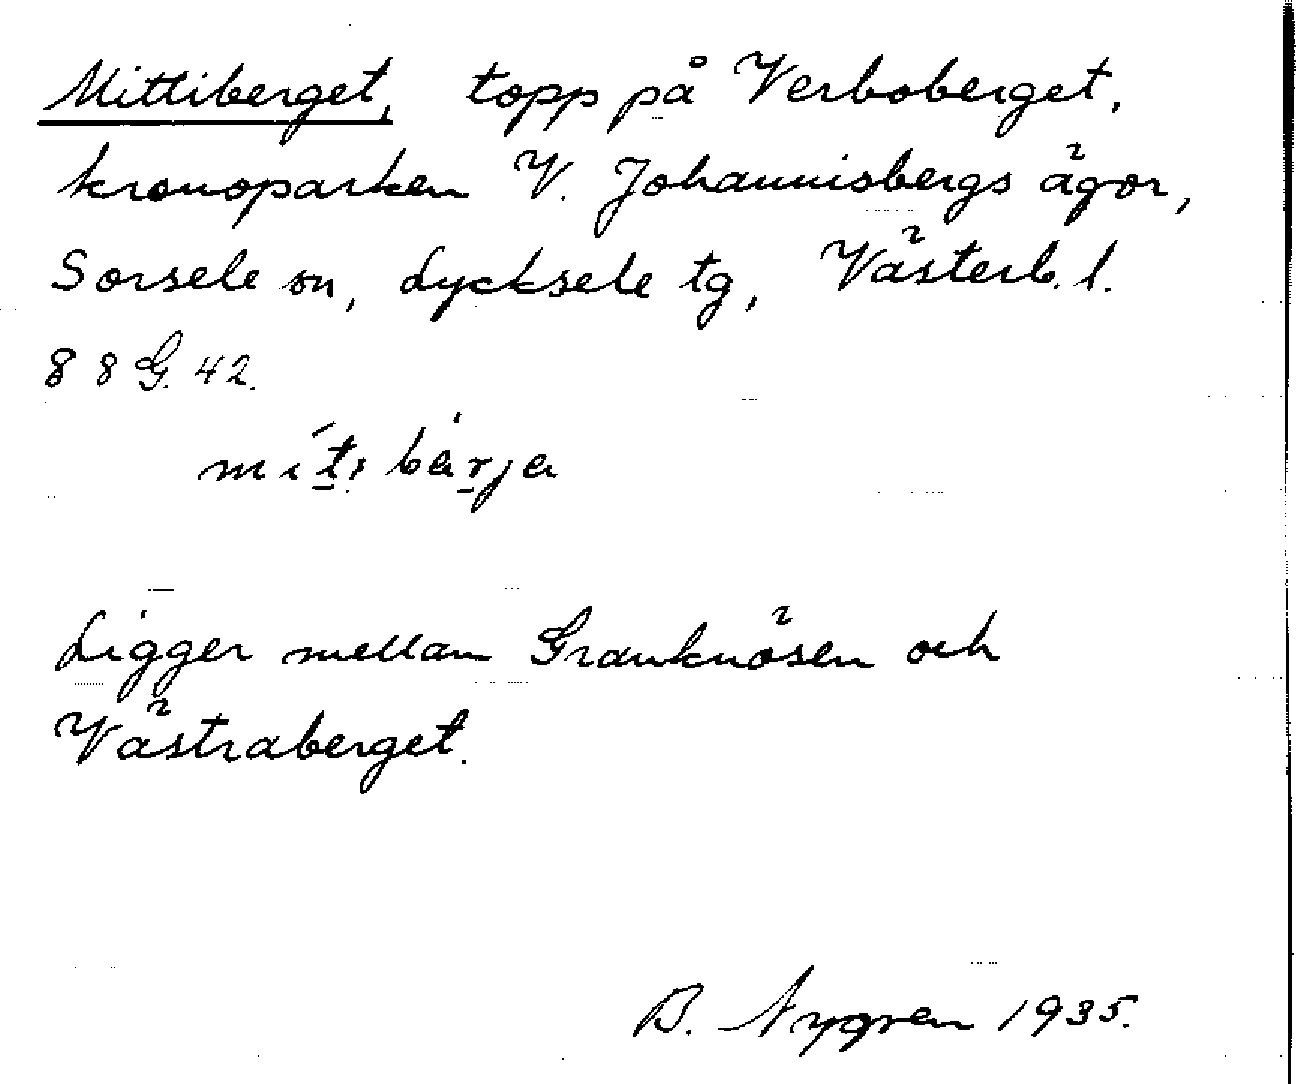 Mittiberget, topp på Verboberget,
kronoparken V. Johannisbergs ägor,
Sorsele sn, Lycksele tg, Västerb. l.
88G.42.
mít̠ı bȧr̠ja
Ligger mellan Granknösen och
Västraberget.
B. Nygren 1935.